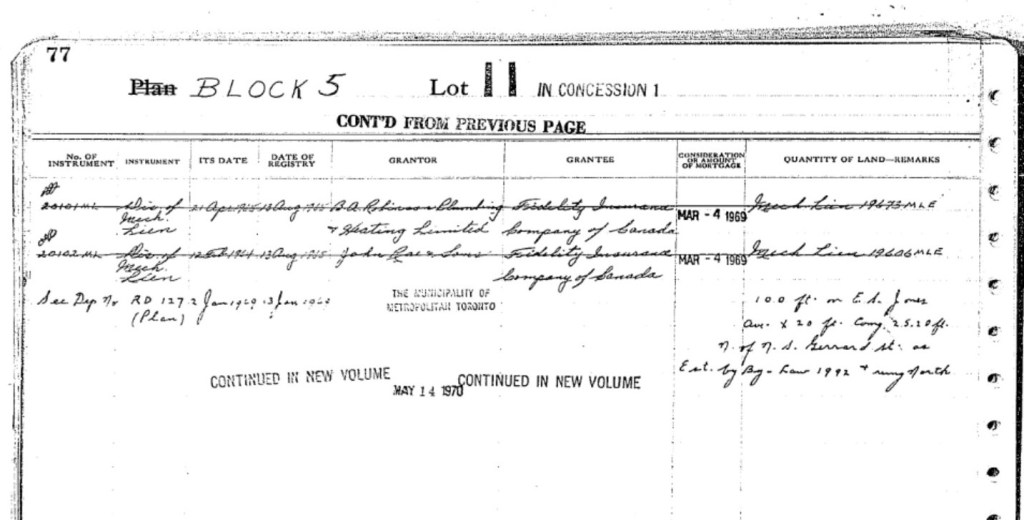 77
Plan BLOCK 5 Lot 11 IN CONCESSION 1
CONT'D FROM PREVIOUS PAGE
No. OF INSTRUMENT INSTRUMENT ITS DATE DATE OF REGISTRY GRANTOR GRANTEE CONSIDERATION OR AMOUNT OF MORTGAGE QUANTITY OF LAND—REMARKS
20101 ML Dis of 13 Aug B.A. Robinson Plumbing Fidelity Insurance MAR - 4 1969 Mech Lien 19673 MLE
Mech. & Heating Limited Company of Canada
Lien
20102 ML Dis of 13 Aug John & Sons Fidelity Insurance MAR - 4 1969 Mech Lien 19606 MLE
Mech. Company of Canada
Lien
See Dep No RD 127 2 Jan 13 Jan THE MUNICIPALITY OF 100 ft. on E.S. Jones
(Plan) METROPOLITAN TORONTO Ave. X 20 ft. Comg. 25.20 ft.
N. of N.S. Gerrard St. as
Est. by By-Law 1992 & rung North
CONTINUED IN NEW VOLUME MAY 14 1970 CONTINUED IN NEW VOLUME